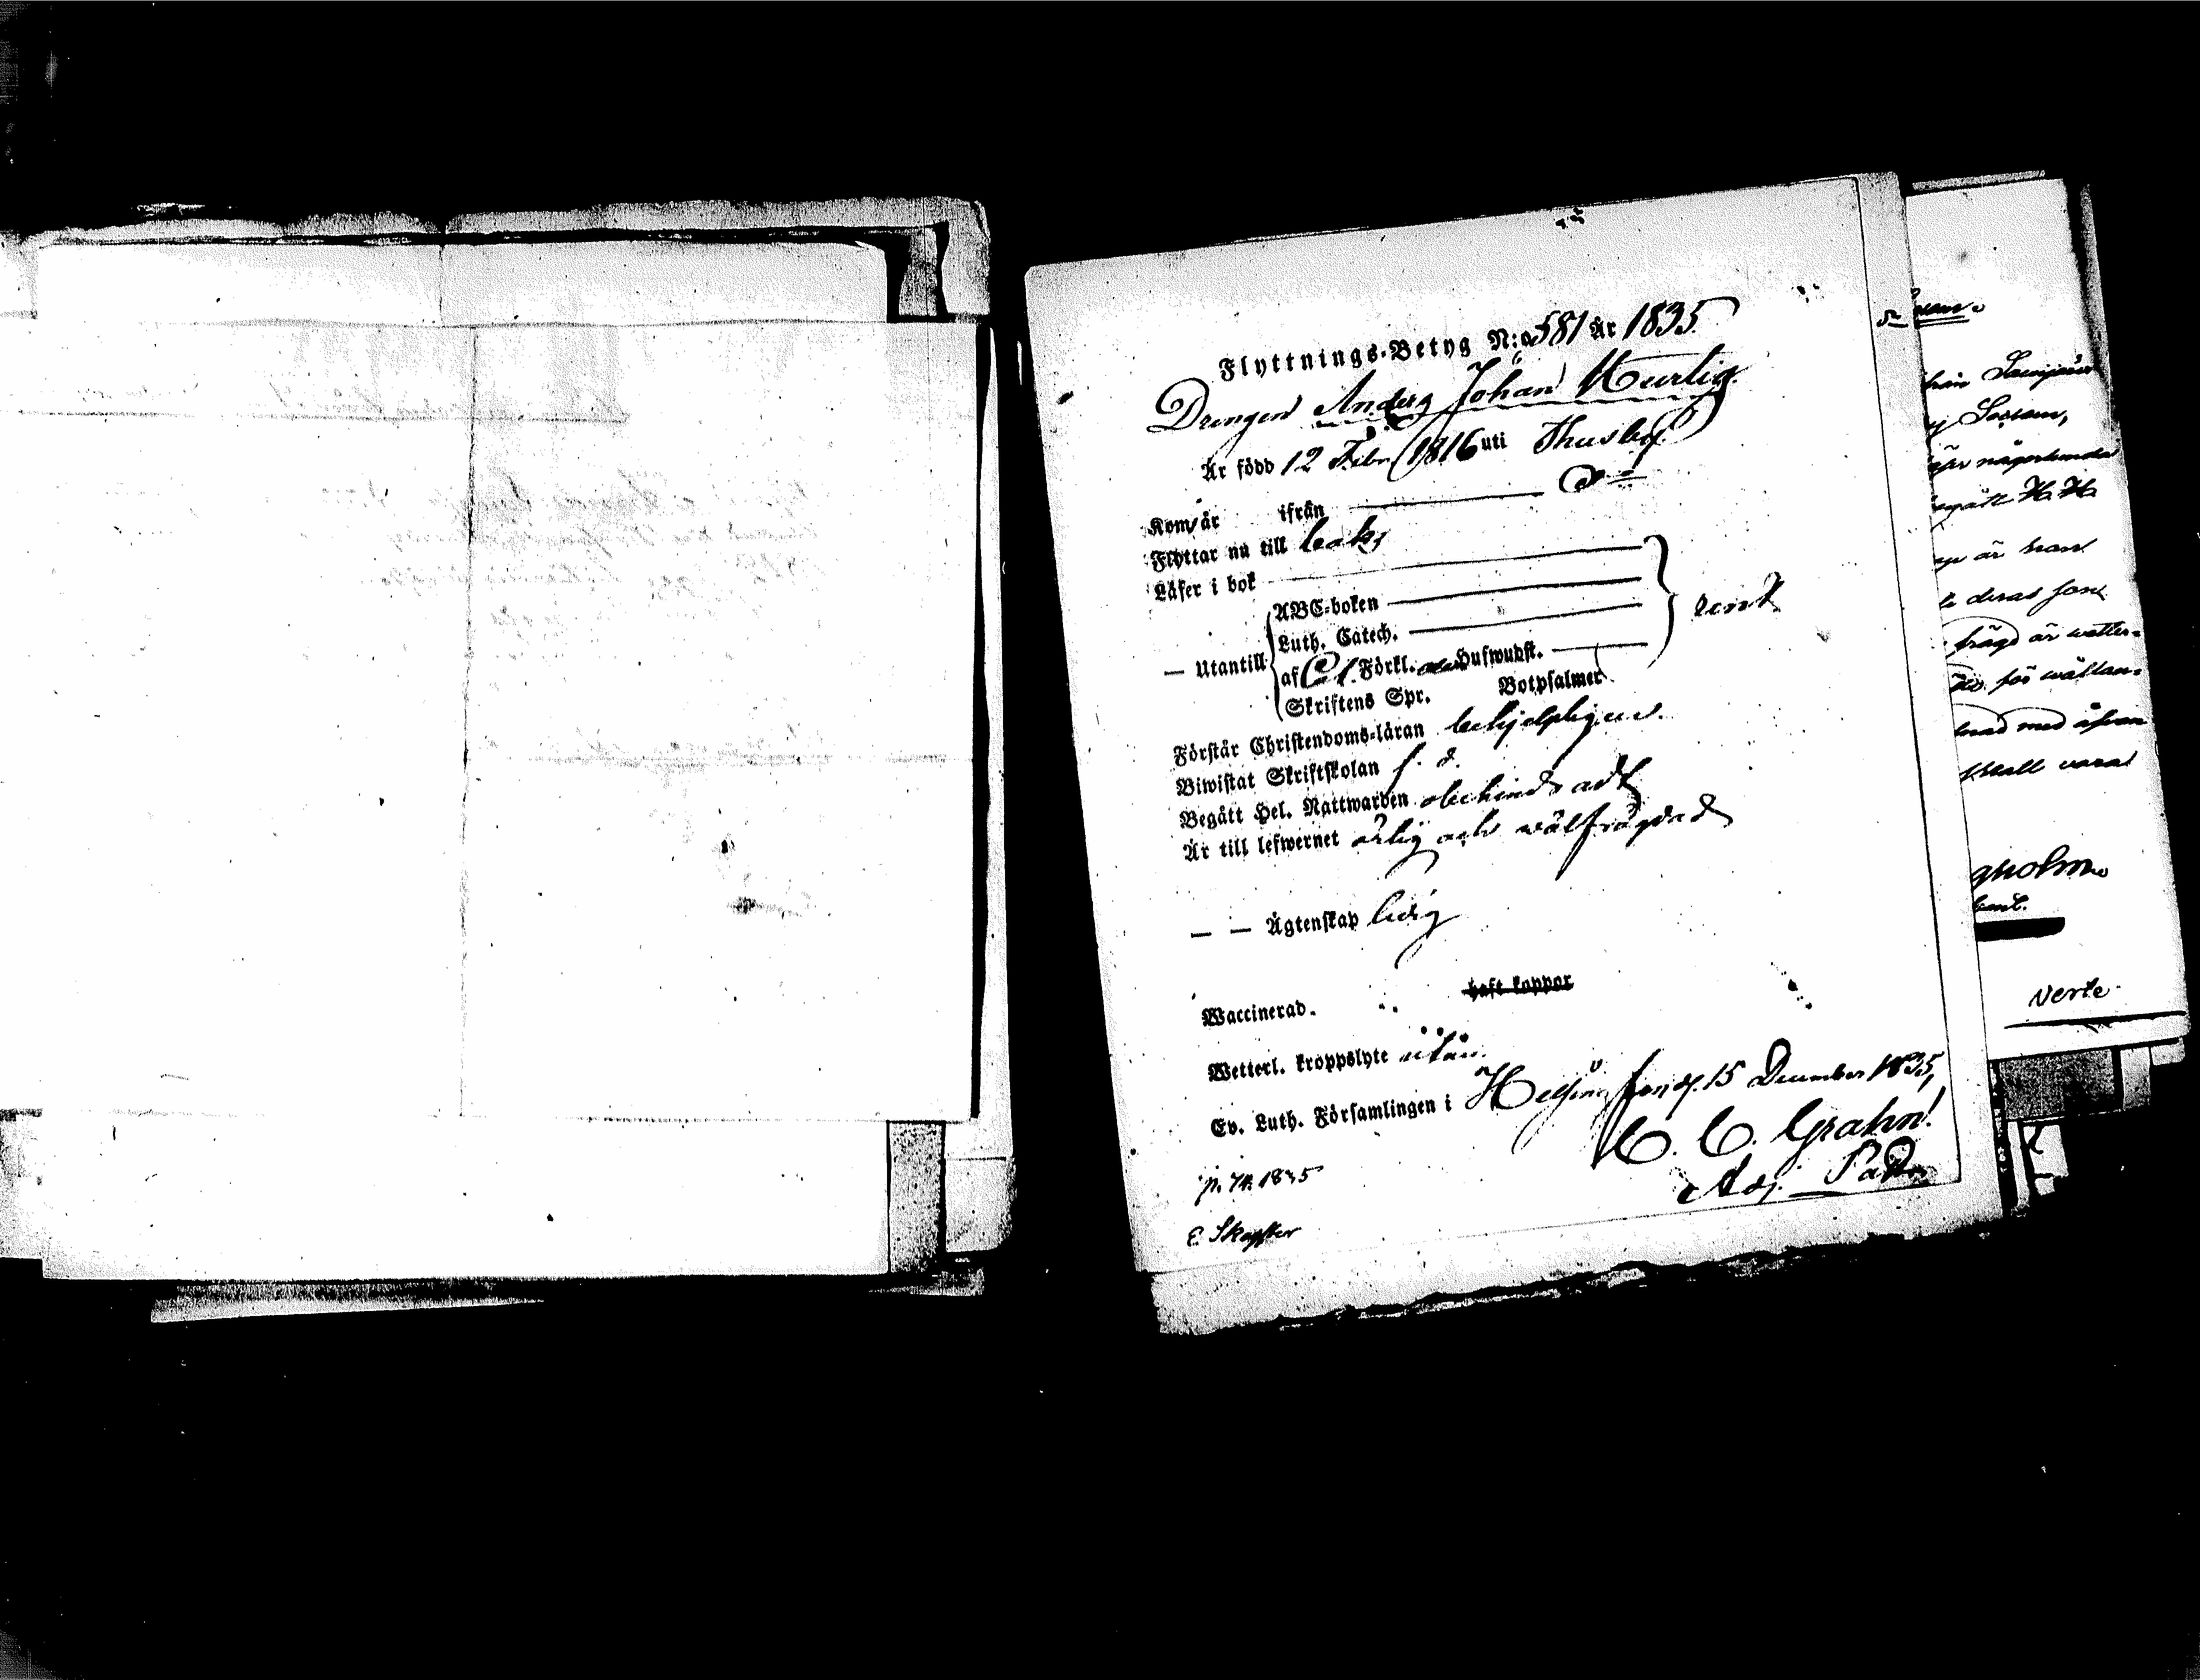 Flyttnings-Betyg N:o 581 År 1835.
Drengen Anders Johan Hurtig.
Är född 12 Febr 1816 uti Thusby.
Kom år ifrån
Flyttar nu till
Läser i bok
ABC-boken
Luth. Catech.
rent
— Utantill
af Förkl. Hufwudst.
Skriftens Spr. Botpsalmer
Förstår Christendoms-läran behjelpligen.
Biwistat Skriftskolan
Begått Hel. Nattwarden obehindradt
Är till lefwernet ärlig och wälfrägdad
— — Ägtenskap ledig
Waccinerad. haft koppor
Wetterl. kroppslyte utan.
Ev. Luth. Församlingen i Helsingfors d. 15 December 1835,
C. C. Grahn.
Adj. Past.
p. 74. 1835
från
Socken,
någorlunda
H. H.
är han
deras
frägd är wetter-
för wällan-
med
skall vara
Verte